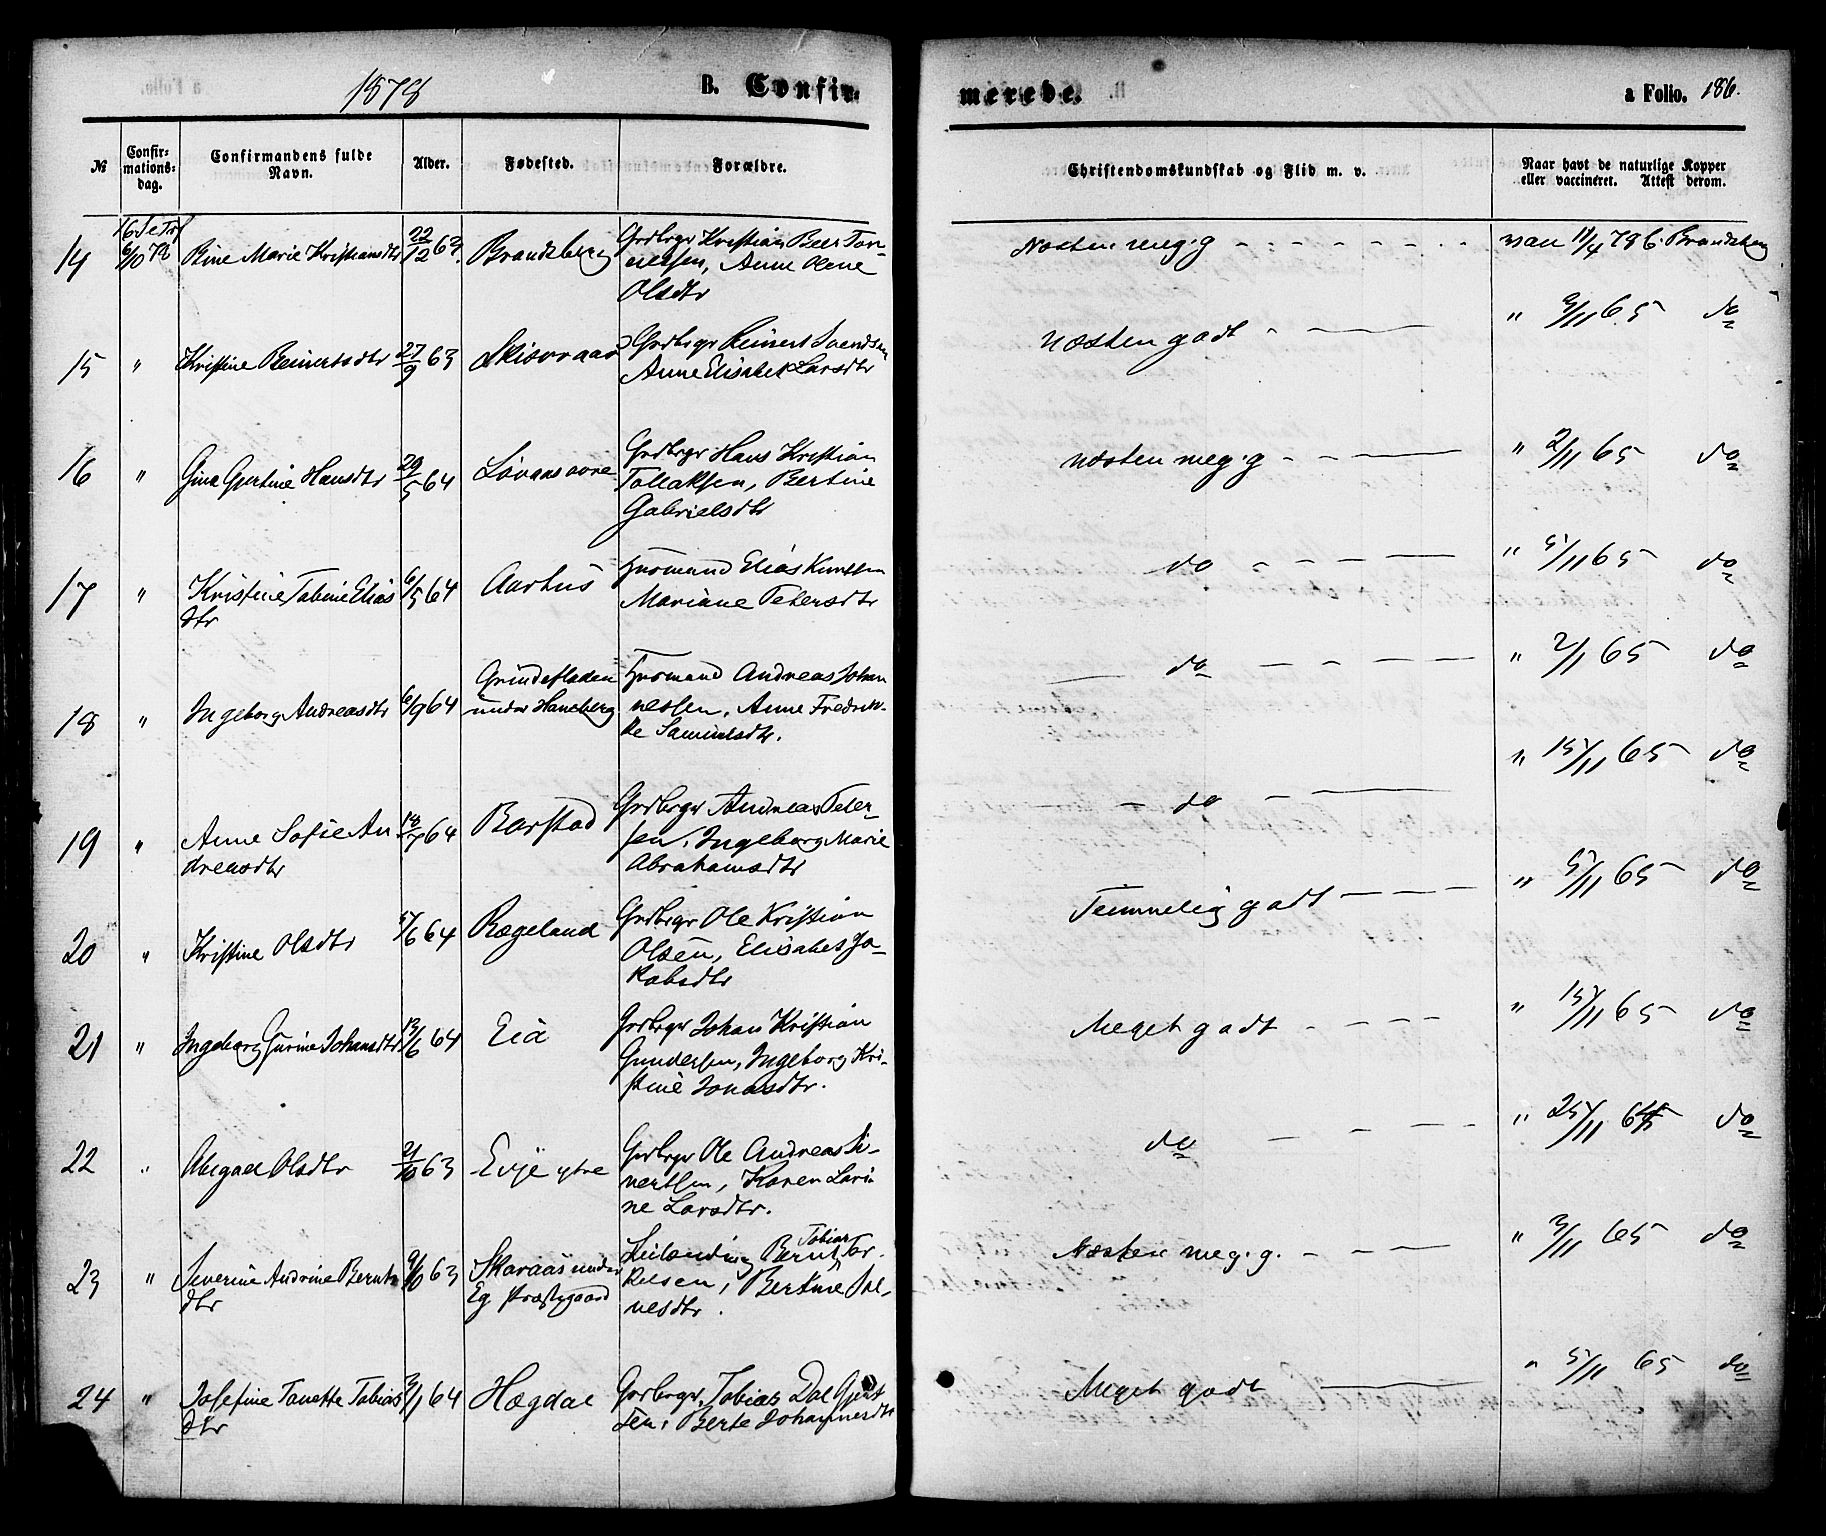 1878
B. Confir-
merede.
a Folio. 186.
№
Confir-
mations-
dag.
Confirmandens fulde
Navn.
Alder.
Fødested.
Forældre.
Christendomskundskab og Flid m. v.
Naar havt de naturlige Kopper
eller vaccineret. Attest derom.
14 6/10 78 Marie Kristiansdtr 22/12 63. Brandsberg Grdbrgr Kristian Beer Tor-
Anne Olene
Olsdtr
Næsten meg. g
15 " Kristine Reinertsdtr 27/9 63 Grdbrgr Reinert Svendsen
Anne Elisabet Larsdtr
Næsten godt " 9/11 65 do
16 " Gina Gjertine Hansdtr 29/5 64 Grdbrgr Hans Kristian
Tollaksen, Bertine
Gabrielsdtr
Næsten meg. g " 2/11 65 do
17 " Kristine Tabine Elias
dtr
6/5 64 Aarhus Husmand Elias Knutsen
Mariane Petersdtr
do " 5/11 65 do
18 " Ingeborg Andreasdtr 6/9 64 Grindefladen
under Haneberg
Husmand Andreas Johan
nessen, Anne Fredrik-
ke Samuelsdtr.
do " 2/11 65 do
19 " Anne Sofie An
dreasdtr
18/7 64 Barstad Grdbrgr Andreas Peter-
sen, Ingeborg Marie
Abrahamsdtr
do " 15/11 65 do
20 " Kristine Olsdtr 5/6 64 Rægeland Grdbrgr Ole Kristian
Olsen, Elisabet Ja-
kobsdtr
Temmelig godt " 5/11 65 do
21 " Ingeborg Gurine Johansdtr 13/6 64 Eia Grdbrgr Johan Kristian
Gundersen, Ingeborg Kri-
stine Jonasdtr.
Meget godt " 15/11 65 do
22 " Abigael Olsdtr 21/10 63 Evje ytre Grdbrgr Ole Andreas Si-
vertsen, Karen Lari
ne Larsdtr.
do " 25/11 65 do
23 " Severine Andrine Bernts
dtr
9/10 63 Skaraas under
Eg præstegaard
Leilænding Bernt Tobias Tor-
kelsen, Bertine Sve-
nesdtr.
Næsten meg. g. " 3/11 65 do
24 " Josefine Tanette Tobias
dtr
3/1 64 Hægdal Grdbrgr. Tobias Dal Gjert
sen, Berte Johannesdtr
Meget godt " 5/11 65 do